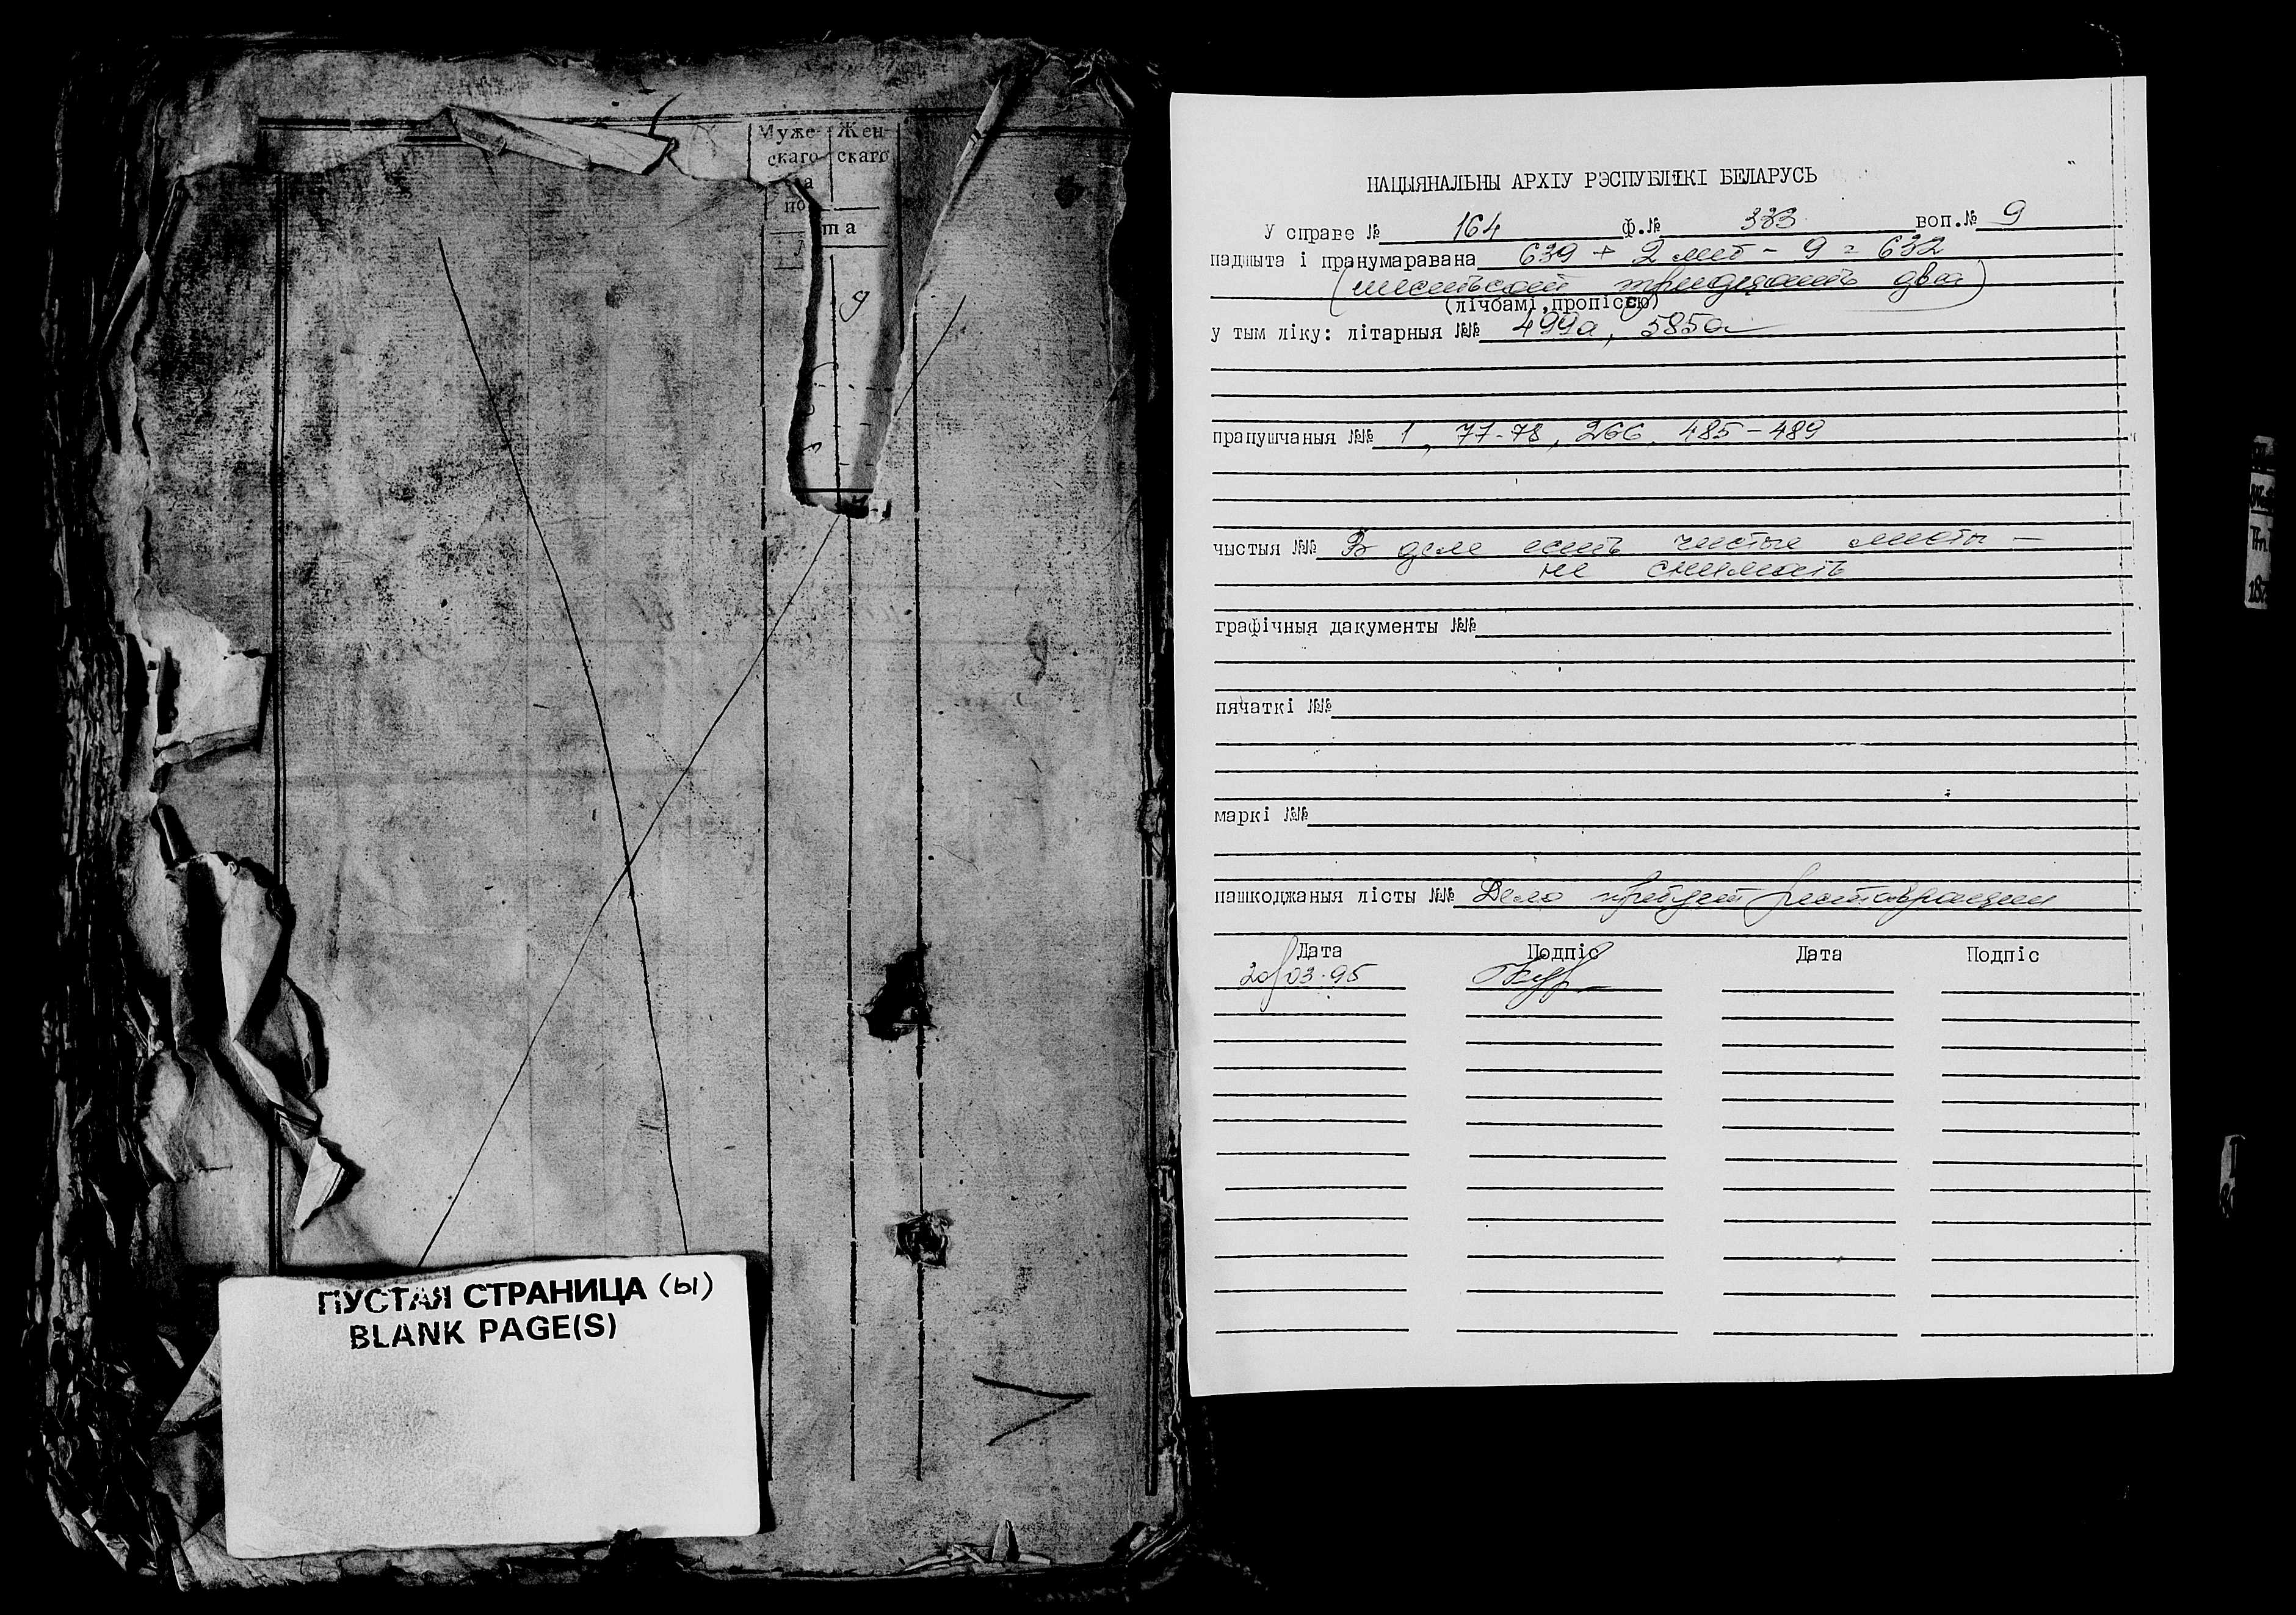 Муже- Жен-
скаго скаго
а
по
та
9
ПУСТАЯ СТРАНИЦА (Ы)
BLANK PAGE(S)
НАЦЫЯНАЛЬНЫ АРХІУ РЭСПУБЛІКІ БЕЛАРУСЬ
У справе № 164 ф.№ 333 воп.№ 9
падшыта і пранумаравана 639 + 2 лит - 9 = 632
(шестьсот тридцать два)
(лічбамі, пропіссю)
у тым ліку: літарныя №№ 499а, 585а
прапушчаныя №№ 1, 77-78, 266, 485-489
чыстыя №№ В деле есть чистые листы -
не снимать
графічныя дакументы №№
пячаткі №№
маркі №№
пашкоджаныя лісты №№ Дело требует реставрации
Дата Подпіс Дата Подпіс
20/03.95